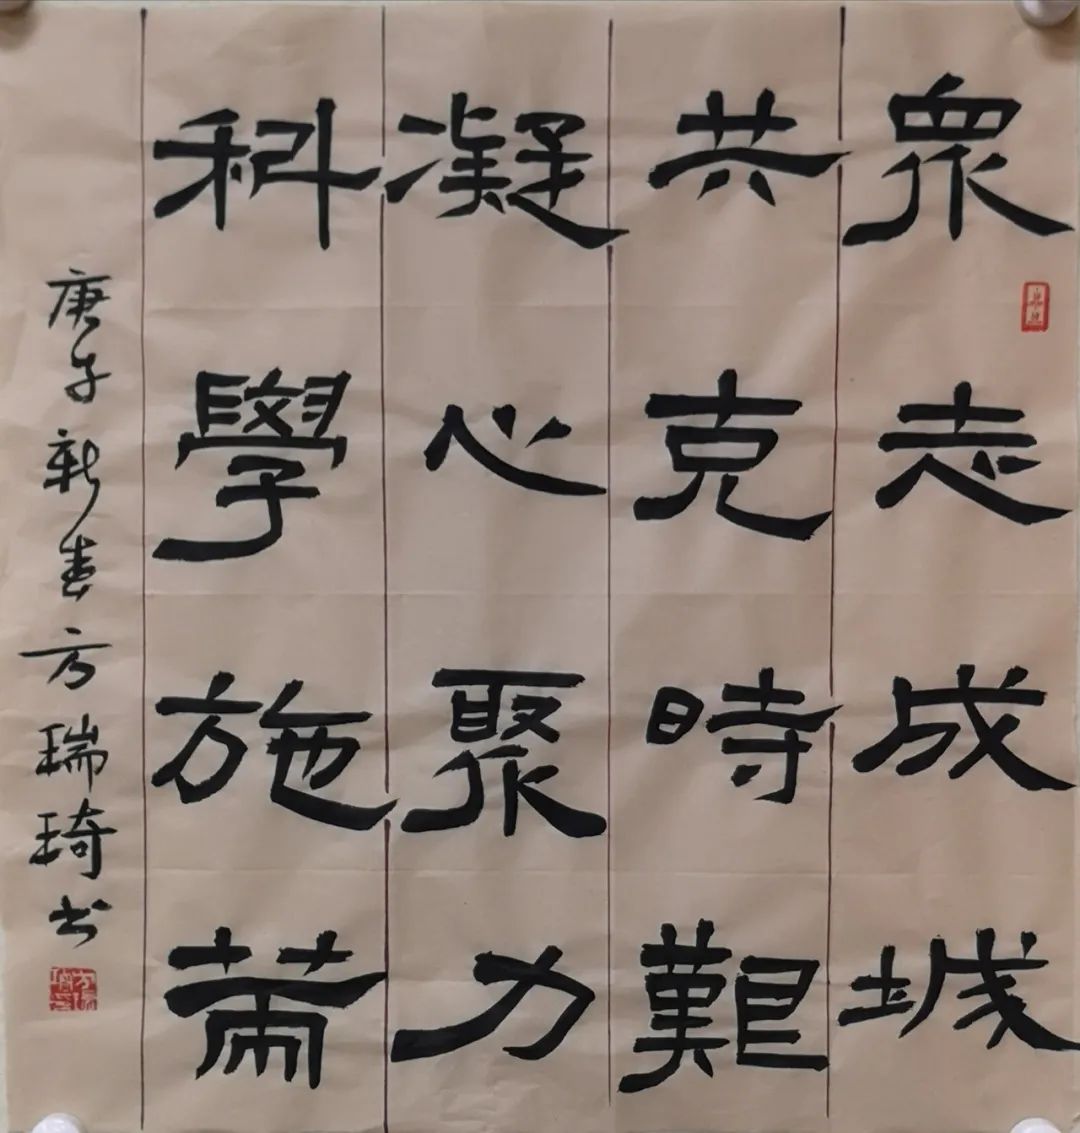 衆志成城
共克時艱
凝心聚力
科學施策
庚子新春方瑞琦书